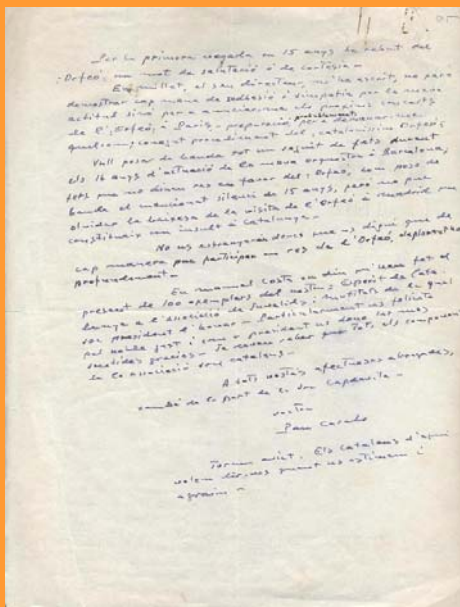 Per la primera vegada en 15 anys he rebut del
Orfeó, un mot de salutació o de cortesia -
En Millet, el seu director, m'ha escrit, no para
demostrar cap mena de adhesió o simpatia per la meva
actitud sino per a anunciarme els proxims concerts
de l'Orfeó, à Paris, preparació, probablement, per a demanar-me
qualsevol procediment del, catalanissim Orfeó,
Vull posar de banda tot un seguit de fets durant
els 16 anys d'actuació de la meva orquestra à Barcelona,
fets que no diuen res en favor del, Orfeó, com poso de
banda el mencionat silenci de 15 anys, pero no puc
olvidar la baixesa de la visita de l'Orfeó à Madrid que
constitueix un insult à Catalunya -
No us estranyareu doncs que us digui que de
cap manera puc participar en res de l'Orfeó, deplorant-ho
profondement -
En Manuel Costa em diu m'heu fet el
present de 100 exemplars del vostre Esperit de Cata-
lunya a l'Associació de Invalids i mutilats de la qual
soc president d'honor - Particularment us felicito
pel noble gest i com a president us dono les mes
sentides gracies - Ja deveu saber que tots els components
de la associació son catalans -
A tots vostès afectuoses abraçades,
també de la part de la Sra Capdevila -
vostre
Pau Casals
Tornen aviat. Els catalans d'aquí
volem dir-vos quant us estimem i
agraim -